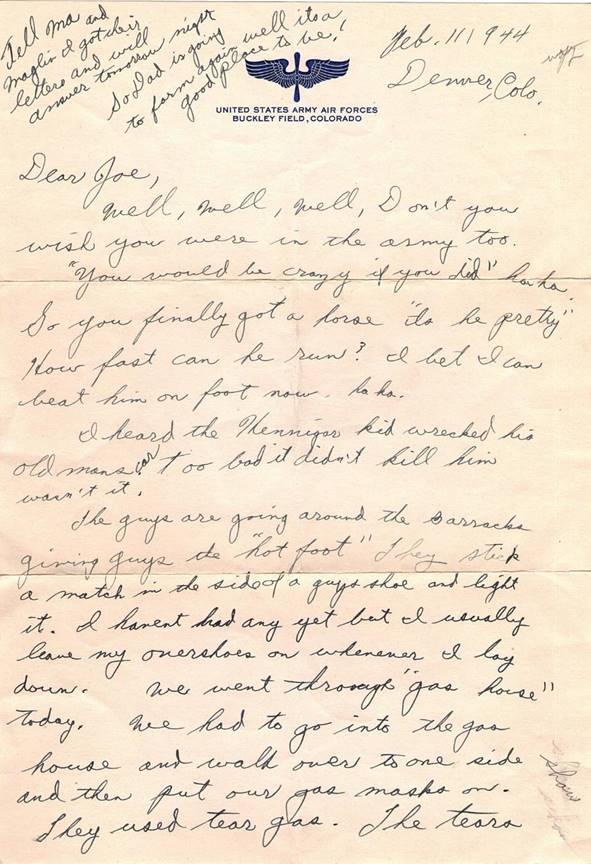 Tell Ma and
I got their
letters and will
answer tomorrow night
So Dad is going
to farm again well its a
good place to be!
Feb. 11 1944
Denver, Colo.
UNITED STATES ARMY AIR FORCES
BUCKLEY FIELD, COLORADO
Dear Joe,
Well, Well, Well, Don't you
wish you were in the army too.
"You would be crazy if you did" ha ha.
So you finally got a horse "is he pretty"
How fast can he run? I bet I can
beat him on foot now. ha ha.
I heard the kid wrecked his
old mans car too bad it didn't kill him
wasn't it.
The guys are going around the Barracks
giving guys the "hot foot" They stick
a match in the side of a guys shoe and light
it. I havent had any yet but I usually
leave my overshoes on whenever I lay
down. We went through "gas house"
today. We had to go into the gas
house and walk over to one side
and then put our gas masks on.
They used tear gas. The tears
show